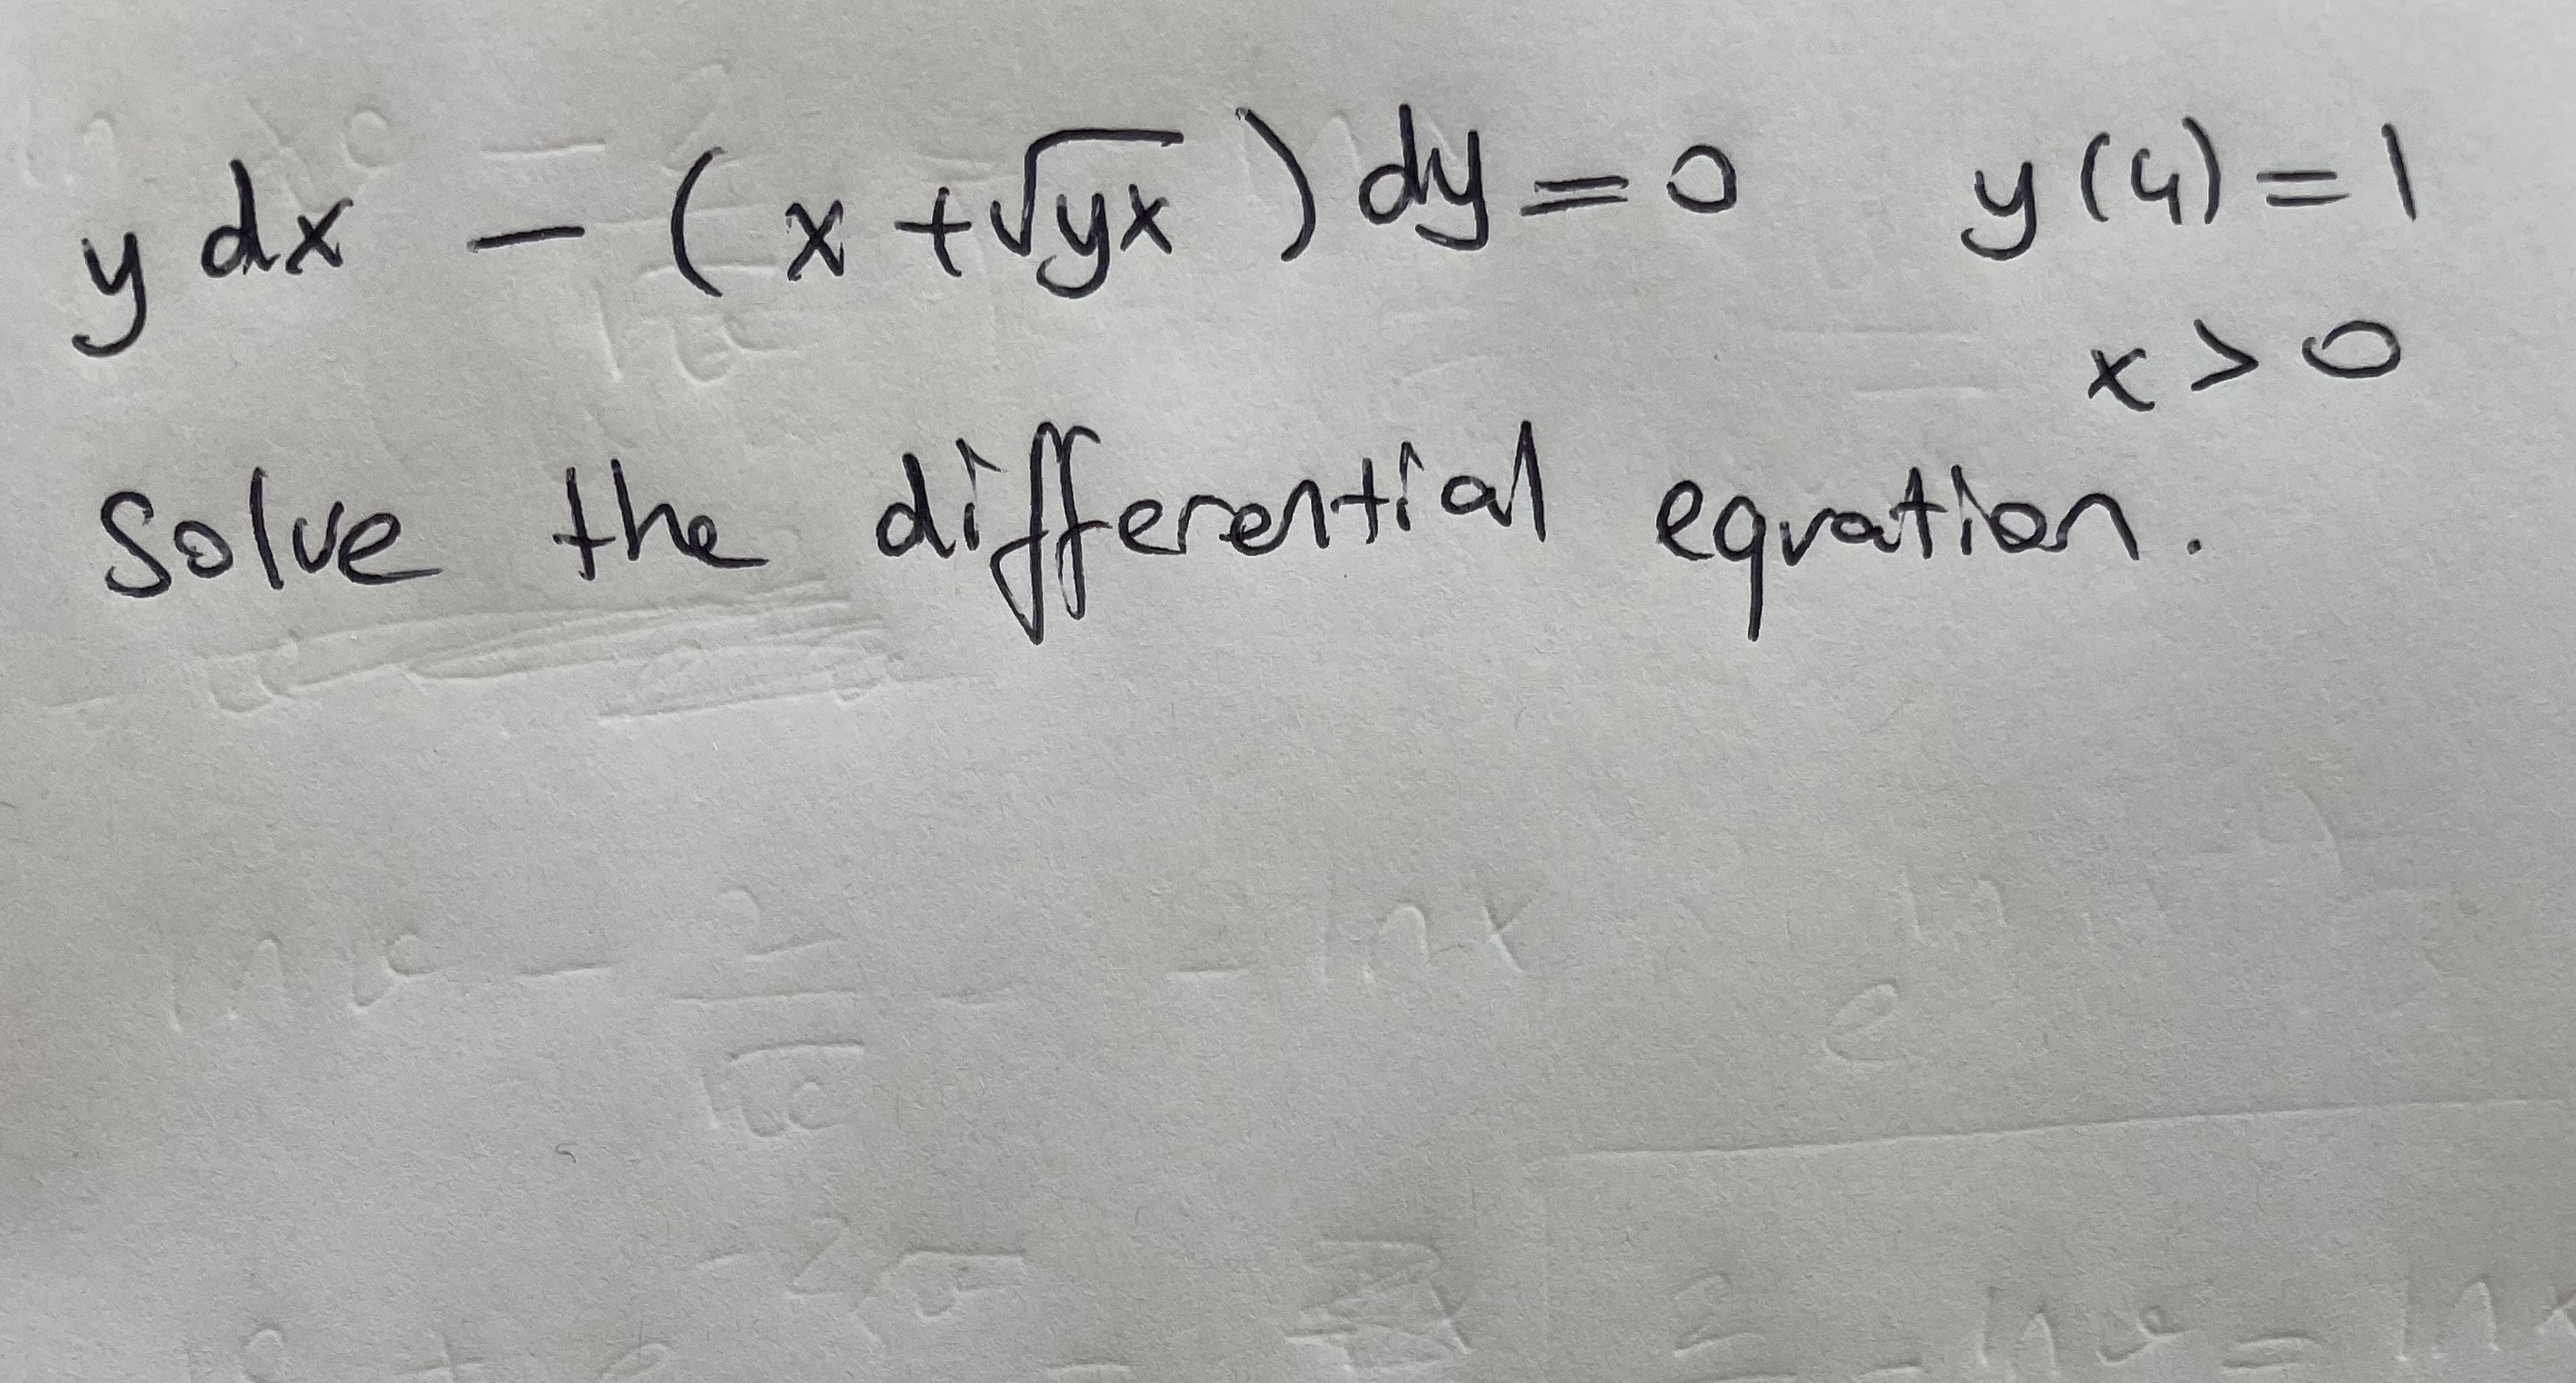 y dx − ( x + √yx ) dy = 0    y (4) = 1
x > 0
Solve the differential equation.